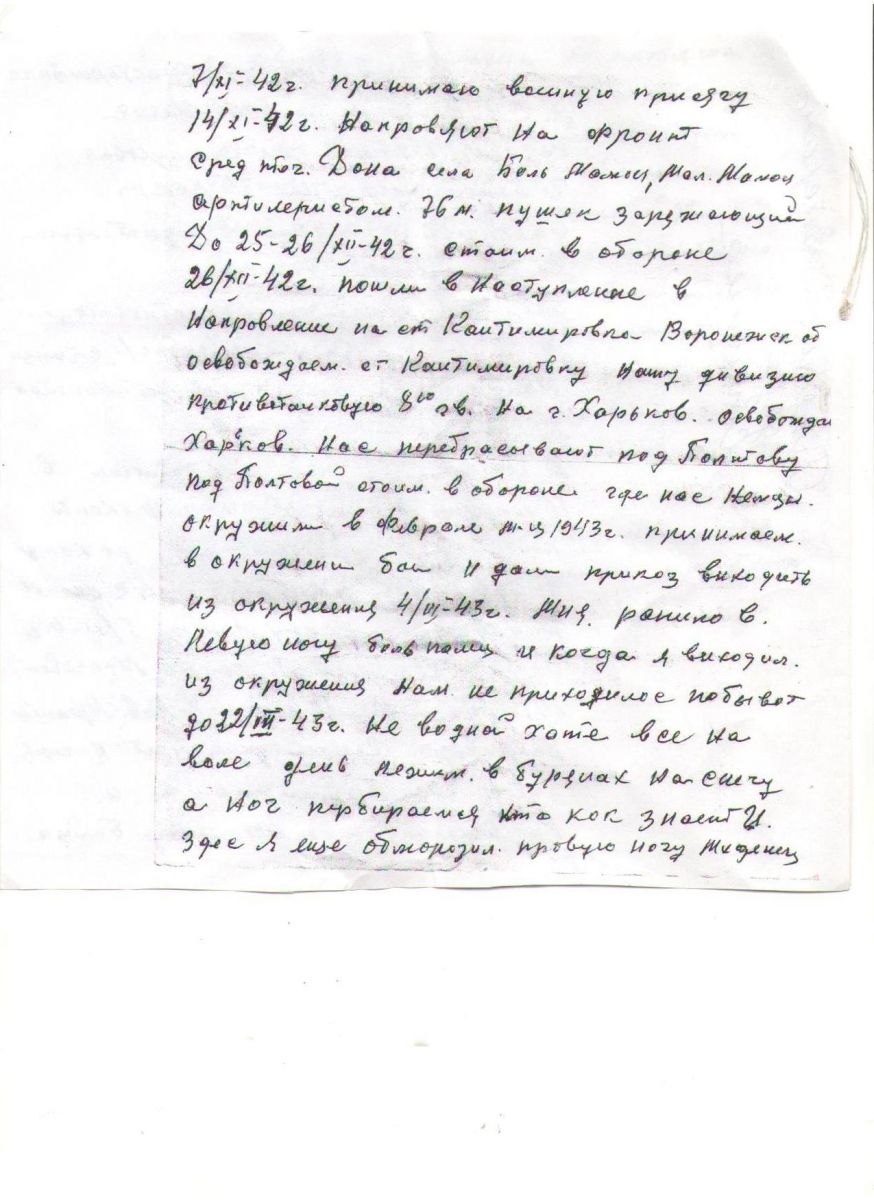 7/XI-42г. принимаю военную присягу
14/XI-42г. Направляют на фронт
сред теч. Дона села Боль Мамон, Мал. Мамон
артилеристом. 76 м. пушек заряжающий
До 25-26/XII-42г. стоим. в обороне
26/XII-42г. пошли в наступление в
Направление на ст Кантимировка Воронежск об
освобождаем. ст Кантимировку нашу дивизию
противотанковую 8ую гв. на г. Харьков. освобождаем
Харков. Нас перебрасывают под Полтову
под Полтовой стоим. в обороне где нас Немцы.
окружили в Феврале м-ц 1943г. принимаем.
в окружени бои и дали приказ виходить
из окружения 4/III-43г. Мня. ранило в.
Левую ногу боль и когда я виходил.
из окружения нам. не приходилос побыват
до 22/III-43г. Не водной хате все на
воле день лежим. в бурянах на снегу
а ноч пробираемся кто как знает И.
Здес я еще обморозил. правую ногу